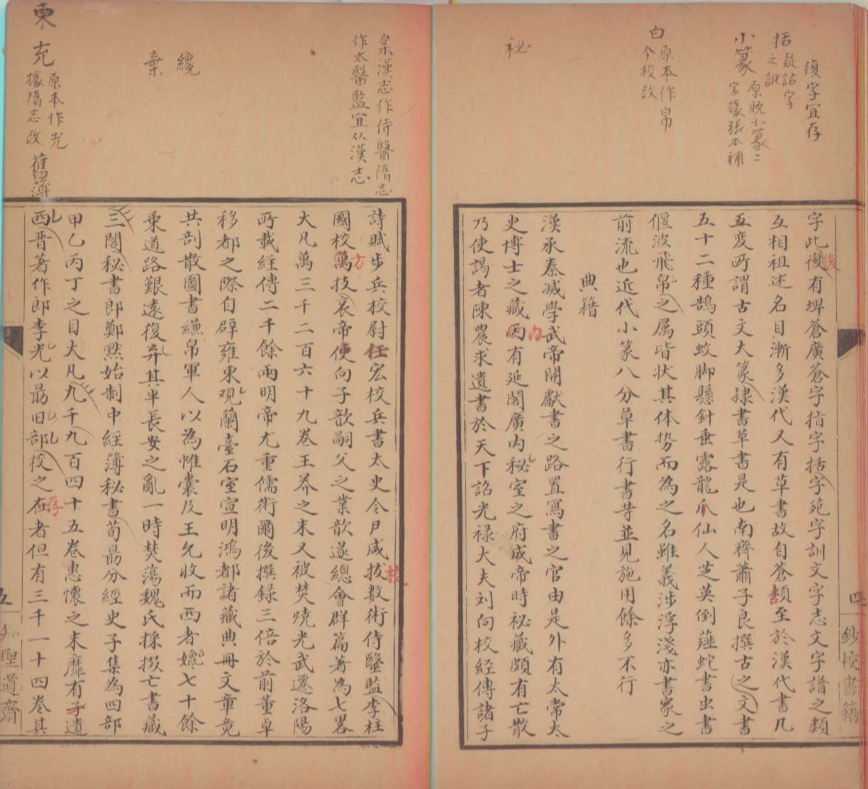 復字宜存
括疑詁字
之訛
小篆原脫小篆二
字據張本補
白原本作帛
今校改
祕
字此復有埤蒼廣蒼字指字括字苑字訓文字志文字譜之類
後
互相祖述名目漸多漢代又有草書故自蒼頡至於漢代書凡
五變所謂古文大篆隸書草書是也南齊蕭子良撰古之文書
五十二種鵠頭蚊脚懸針垂露龍爪仙人芝英倒薤蛇書虫書
偃波飛帛之属皆状其体勢而為之名雖義涉浮淺亦書家之
前流也近代小篆八分草書行書䓁並見施用餘多不行
典籍
漢承秦滅學武帝開獻書之路置寫書之官由是外有太常太
史博士之藏因有延閣廣内秘室之府成帝時祕藏頗有亡散
内
乃使謁者陳農求遺書於天下詔光禄大夫刘向校經傳諸子
四
鈔校書籍
案漢志作侍醫隋志
作太醫監宜从漢志
纔
棄
東
充原本作光
據隋志改
舊簿
詩賦步兵校尉任宏校兵書太史令尹咸挍數術侍醫監李柱
校
國校萬技哀帝使向子歆嗣父之業歆遂總會群篇著為七畧
方
大凡萬三千二百六十九卷王莽之末又被焚燒光武遷洛陽
所載經傳二千餘兩明帝尤重儒術爾後撰録三倍於前董卓
移都之際自辟雍東观蘭臺石室宣明鴻都諸藏典冊文章竟
共剖散圖書縑帛軍人以為帷囊及王允收而西者纔七十餘
乗道路艱遠復弃其半長安之亂一時焚蕩魏氏採掇亡書藏
三閣秘書郎鄭黙始制中經薄秘書荀勗分經史子集為四部
甲乙丙丁之目大凡九千九百四十五卷惠懷之末靡有孑遺
西晋著作郎李光以勗旧部校之在者但有三千一十四卷其
存
五
知聖道齋